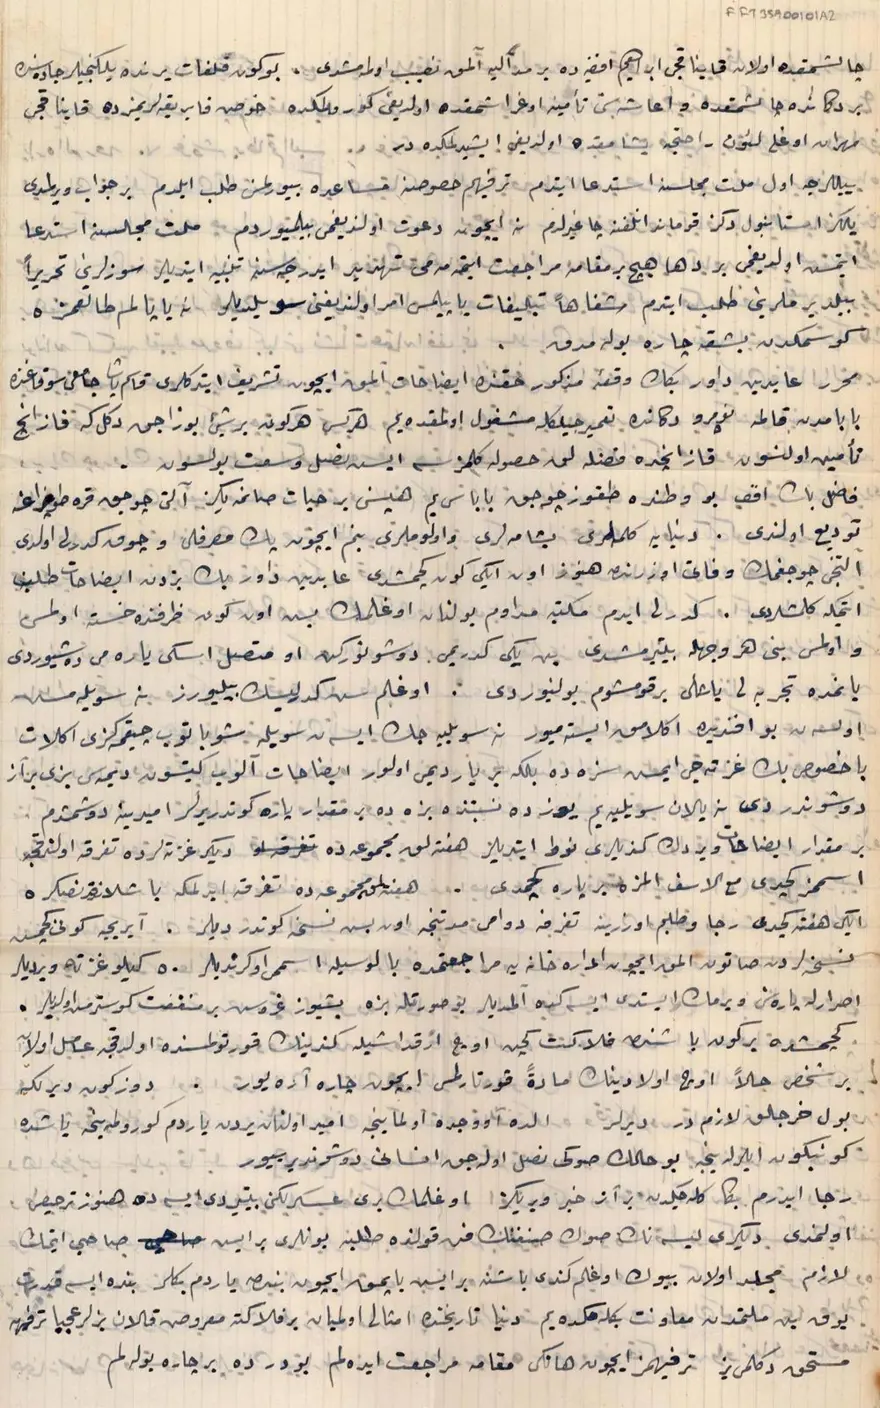 FFT3590010142
چالشمقده اولان قایناقجی ابراهیم افندیده بر مدالیه آلمق نصیب اولمه‌مشدی . بوکون قلفات یرنده یلکنجیلر جاده‌سنده
بر دکانده چالشمقده و اعاشه‌سنی تأمینه اوغراشمقده اولدیغی کورولمکده خصوصی فابریقه‌لریمزده قایناقجی
مهران اوغلی لئون راحتجه یشامقده اولدیغی ایشیدلمکده در .
ییللرجه اول ملت مجلسنه استدعا ایتدم ترفیهم خصوصنه مساعده بیورلمسنی طلب ایلدم بر جواب ویرلمدی
یالکز استانبول دکز قوماندانلغنه چاغیرلدم نه ایچون دعوت اولندیغمی بیلمیوردم ملت مجلسنه استدعا
ایتمش اولدیغمی بر دها هیچ بر مقامه مراجعت ایتمه‌مه‌می تهدید ایدرجه‌سنه تنبیه ایتدیلر سوزلرینی تحریراً
بیلدیرملرینی طلب ایتدم شفاهاً تبلیغات یاپیلمسی امر اولندیغنی سویلدیلر نه یاپالم طالعمزه
کوسمکدن بشقه چاره بوله‌مدق .
محرر عابدین داور بکك وقعهٔ مذکور حقنده ایضاحات آلمق ایچون تشریف ایتدکلری قاسم پاشا جامع سوقاغنده
بابامدن قالمه نومرو دکانده تعمیرجیلکله مشغول اولمقده‌یم هرکس هرکون بر شیئی بوزاجق دکل که قازانج
تأمین اولنسون قازانجده فضله‌لق حصوله کلمز سه ایش نصل وسعت بولسون .
فاضل بك افندی بو وطنده طقوز چوجق باباسی‌یم هپسنی بر حیات صانمه‌یکز آلتی چوجق قره طوپراغه
تودیع اولندی . دنیایه کلملری یشامه‌لری و اولوملری بنم ایچون پك مصرفلی و چوق کدرلی اولدی
آلتنجی چوجغمك وفاتی اوزرنده هنوز اون ایکی کون کچمشدی عابدین داور بك بزدن ایضاحات طلب
ایتمکه کلمشلردی . کدرلی ایدم مکتبه مداوم بولنان اوغلمك بش اون کون ظرفنده خسته اولمسی
و اولمسی بنی هر وجهله بیتیرمشدی بن یکی کدریمی دوشونورکن او متصل اسکی یاره‌می ده‌شیوردی
یانمده تجربه‌لی یاشلی بر قومشوم بولنیوردی . اوغلم سن کدرلیسك بیلیورز نه سویله‌مش
اولسه‌ن بو افندیده اکلامق ایسته‌میور نه سویلیه‌جك ایسه‌ن سویله شو باتوب چیقمه‌کزی اکلات
باخصوص بك غزته‌جی ایمش سزه ده بلکه بر یاردیمی اولور ایضاحات آلوب کیتسون دیمه‌سی بزی بر آز
دوشوندردی نه یالان سویلیه‌یم یوزده نسبتنده بزه ده بر مقدار پاره کوندریرلر امیدینه دوشمشدم
بر مقدار ایضاحات ویردك کندیلری نوط ایتدیلر هفته‌لق مجموعه‌ده دیکر غزته‌لرده تفرقه اولندقجه
اسممز کچدی مع الاسف المزه بر پاره کچمدی . هفته‌لق مجموعه‌ده تفرقه ایدلمکه باشلاندقدنصکره
ایکی هفته کچدی رجا و طلبم اوزرینه تفرقه دوامی مدتنجه اون بش نسخه کوندردیلر . آیریجه کونی کچمش
نسخه‌لردن صاتون آلمق ایچون اداره‌خانه‌یه مراجعتمده بالوسیله اسممی اوکرندیلر ٥٠ کیلو غزته ویردیلر
اصرارله پاره‌سنی ویرمك ایستدی ایسه‌مده آلمدیلر بو صورتله بزه بشیوز غروش بر منفعت کوسترمش اولدیلر .
کچمشده بر کون باشندن فلاکت کچن اوچ آرقداشیله کندینك قورتولمسنده اولدقجه عامل اولان
بر شخص حالاً اوچ اولادینك مادةً قورتارلمسی ایچون چاره آرایور . دوزکون دیرلکه
بول خرجلق لازم در دیرلر الده آووجده اولماینجه امید اولنان یردن یاردم کورولمه‌ینجه یاشده
کونبکون ایلرلینجه بو حالك صوکی نصل اوله‌جق انسانی دوشوندیریور
رجا ایدرم بکا کله‌جکدن بر آز خبر ویریکز اوغلمك بری عسکرلکنی بیتیردی ایسه ده هنوز ترخیص
اولنمدی دیکری لیسه‌نك صوك صنفنك فن قولنده طلبه بونلری بر ایش صاحبی ایتمك
لازم مجلد اولان بیوك اوغلم کندی باشنه بر ایش یاپمق ایچون بندن یاردم بکلر بنده ایسه قدرت
یوق بن ملتمدن معاونت بکله‌مکده‌یم دنیا تاریخنده امثالی اولمیان بر فلاکته معروض قالان بزلر عجبا ترفیهه
مستحق دکلمی‌یز ترفیهمز ایچون هانکی مقامه مراجعت ایده‌لم بو درده بر چاره بوله‌لم